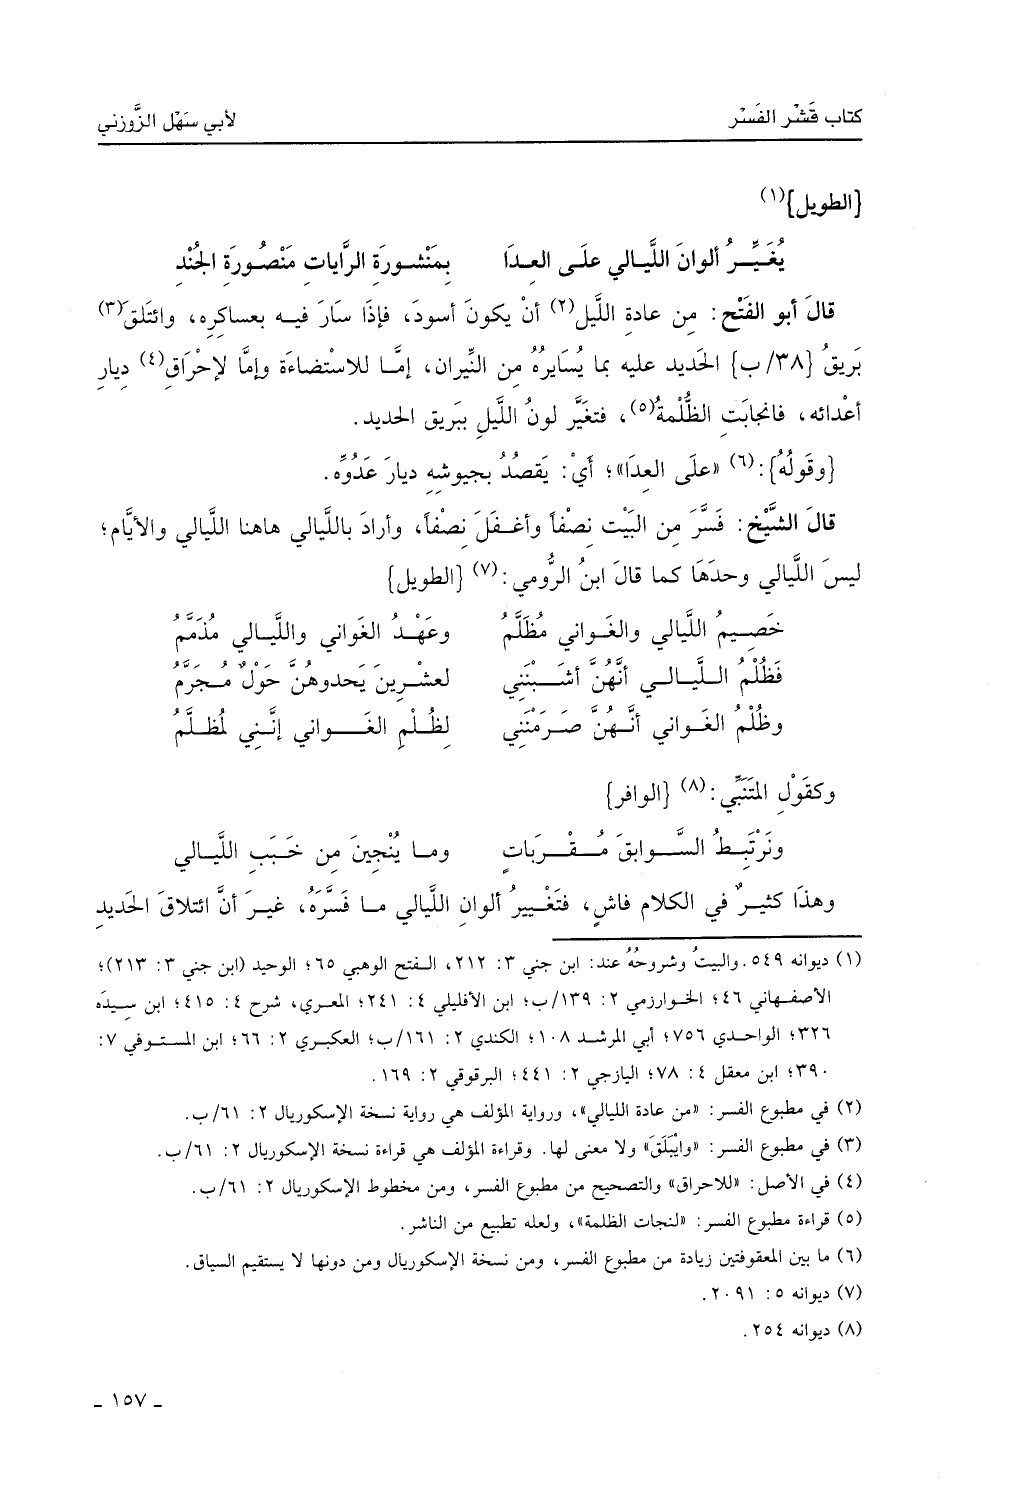 كتاب قَشْر الفَسْر لأبي سَهْل الزَّوزني
{الطويل}(١)
يُغَيِّرُ ألوانَ اللَّيالي علَى العِدَا بِمَنْشورَةِ الرَّاياتِ مَنْصُورَةِ الجُنْدِ
قالَ أبو الفَتْح: مِن عادةِ اللَّيل(٢) أنْ يكونَ أسودَ، فإذَا سَارَ فيه بعساكرِه، وائتلقَ(٣)
بَريقُ {٣٨/ب} الحَديد عليه بما يُسَايرُهُ مِن النِّيران، إمَّا للاسْتضاءَة وإمَّا لإحْرَاقِ(٤) ديارِ
أعْدائه، فانجابَتِ الظُّلْمةُ(٥)، فتغَيَّر لونُ اللَّيلِ ببَريق الحديد.
{وقَولُهُ}:(٦) «علَى العِدَا»؛ أيْ: يَقصُدُ بجيوشِهِ ديارَ عَدُوِّه.
قالَ الشَّيْخ: فَسَّرَ مِن البَيْت نِصْفاً وأغفَلَ نِصْفاً، وأرادَ باللَّيالي هاهنا اللَّيالي والأيَّام؛
ليسَ اللَّيالي وحدَهَا كما قالَ ابنُ الرُّومي:(٧) {الطويل}
خَصِيمُ اللَّيالي والغَواني مُظَلَّمُ وعَهْدُ الغَواني واللَّيالي مُذَمَّمُ
فَظُلْمُ اللَّيالي أنَّهُنَّ أشَبْنَني لعشْرينَ يَحدوهُنَّ حَوْلٌ مُجَرَّمُ
وظُلْمُ الغَواني أنَّهُنَّ صَرَمْنَني لِظُلْمِ الغَواني إنَّني لَمُظلَّمُ
وكقَوْلِ المتَنَبِّي:(٨) {الوافر}
ونَرْتَبِطُ السَّوابقَ مُقْرَباتٍ وما يُنْجِينَ مِن خَبَبِ اللَّيالي
وهذَا كثيرٌ في الكلامِ فاشٍ، فتَغْييرُ ألوانِ اللَّيالي ما فَسَّرَهُ، غيرَ أنَّ ائتلاقَ الحَديد
(١) ديوانه ٥٤٩. والبيتُ وشروحُهُ عند: ابن جني ٣: ٢١٢، الفتح الوهبي ٦٥؛ الوحيد (ابن جني ٣: ٢١٣)؛
الأصفهاني ٤٦؛ الخوارزمي ٢: ١٣٩/ب؛ ابن الأفليلي ٤: ٢٤١؛ المعري، شرح ٤: ٤١٥؛ ابن سِيدَه
٣٢٦؛ الواحدي ٧٥٦؛ أبي المرشد ١٠٨؛ الكندي ٢: ١٦١/ب؛ العكبري ٢: ٦٦؛ ابن المستوفي ٧:
٣٩٠؛ ابن معقل ٤: ٧٨؛ اليازجي ٢: ٤٤١؛ البرقوقي ٢: ١٦٩.
(٢) في مطبوع الفسر: «من عادة الليالي»، ورواية المؤلف هي رواية نسخة الإسكوريال ٢: ٦١/ب.
(٣) في مطبوع الفسر: «وايْتَلَقَ» ولا معنى لها. وقراءة المؤلف هي قراءة نسخة الإسكوريال ٢: ٦١/ب.
(٤) في الأصل: «للاحراق» والتصحيح من مطبوع الفسر، ومن مخطوط الإسكوريال ٢: ٦١/ب.
(٥) قراءة مطبوع الفسر: «لنجات الظلمة»، ولعله تطبيع من الناشر.
(٦) ما بين المعقوفتين زيادة من مطبوع الفسر، ومن نسخة الإسكوريال ومن دونها لا يستقيم السياق.
(٧) ديوانه ٥: ٢٠٩١.
(٨) ديوانه ٢٥٤.
- ١٥٧ -